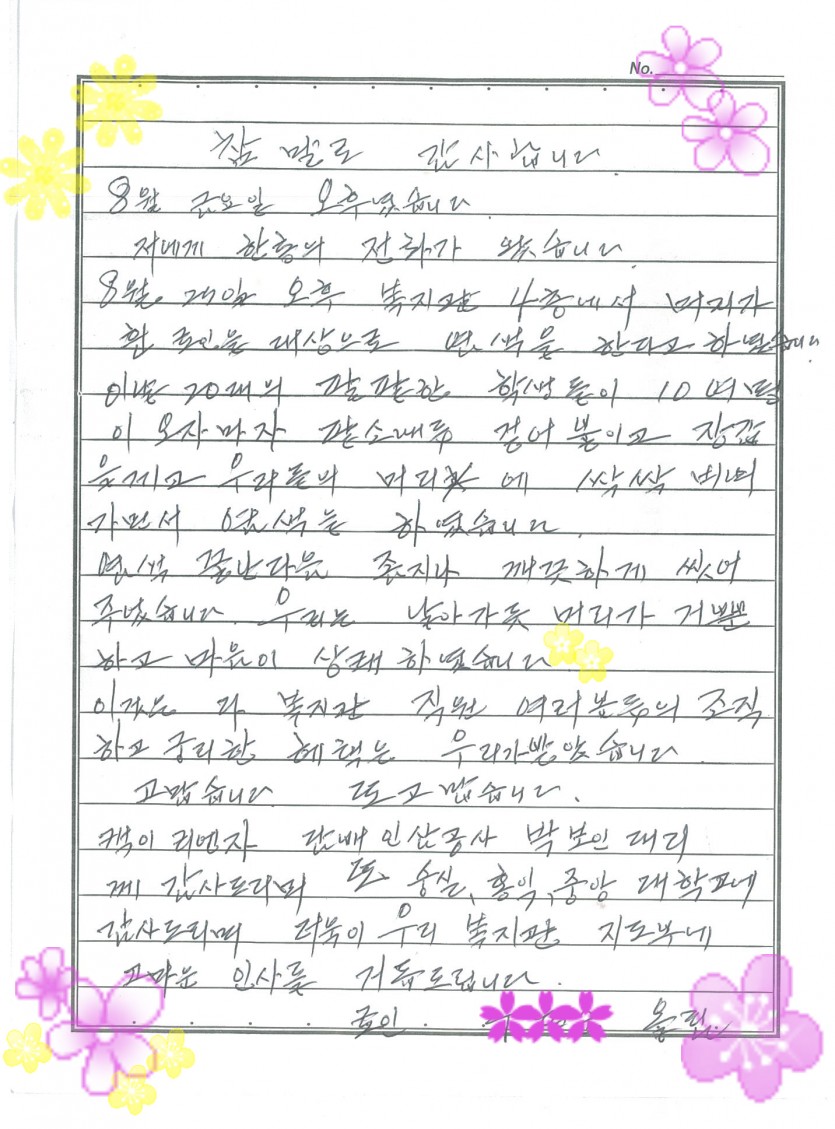 No.
참 말로 감사합니다
8월 금요일 오후였습니다
저에게 한통의 전화가 왔습니다.
8월 25일 오후 복지관 4층에서 머리가
흰 노인을 대상으로 염색을 한다고 하였습니다.
이날 20대의 팔팔한 학생들이 10여명
이 오자마자 팔소매를 걷어 붙이고 장갑
을 끼고 우리들의 머리에 싹싹 비벼
가면서 염색을 하였습니다.
염색 끝난다음 깨끗하게 씻어
주었습니다. 우리는 날아가듯 머리가 거뿐
하고 마음이 상쾌하였습니다
이것은 다 복지관 직원 여러분들의 조직
하고 궁리한 혜택을 우리가 받았습니다
고맙습니다 또 고맙습니다.
담배인삼공사 박보인 대리
께 감사드리며 또 숭실, 홍익, 중앙 대학교에
감사드리며 더욱이 우리 복지관 지도부에
고마운 인사를 거듭드립니다.
노인 올림.